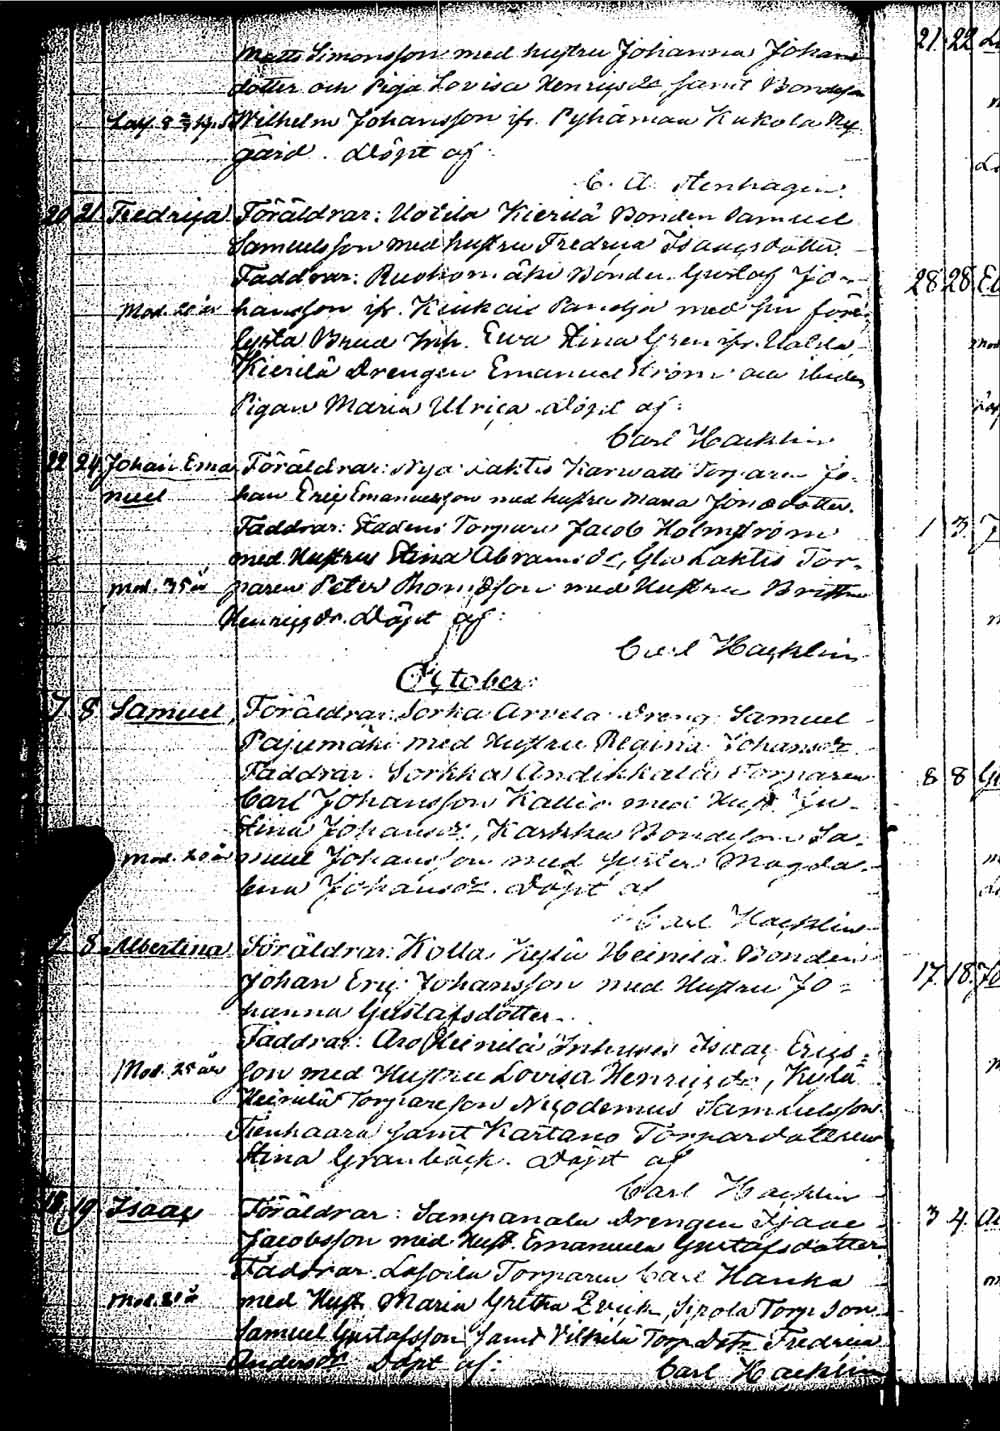 Matts Simonsson med hustru Johanna Johans
dotter och Piga Lovisa Henricsdr, samt Bondeson
Wilhelm Johansson ifr. Pyhämaa Kukola Ny
gård. Döpt af:
C. A. Stenhagen.
20 21 Fredrica Föräldrar: Uotila Kierilä Bonden Samuel
Samuelsson med hustru Fredrica Isaacsdotter.
Faddrar: Ruohomäki Bonden Gustaf Jo-
Mod. 20 år hansson ifr. Kiukais Panelia med sin före
lysta Brud Inh. Ewa Stina Gren ifr. Uotila,
Kierilä Drengen Emanuel Ström och ibidem
Pigan Maria Ulrica. Döpt af:
Carl Hacklin
22 24 Johan Ema Föräldrar: Nya Laktis Karwatti Torparen Jo-
nuel han Eric Emanuelsson med hustru Maria Jonsdotter.
Faddrar: Stadens Torpare Jacob Holmström
med Hustru Stina Abramsdr, Gla Laktis Tor-
Mod. 35 år paren Peter Thomasson med Hustru Britta
Henricsdr. Döpt af:
Carl Hacklin
October
7 8 Samuel, Föräldrar: Sorka Arvela Dreng Samuel
Pajumäki med Hustru Regina Johansdr
Faddrar: Sorkka Andinkala Torparen
Carl Johansson Kallio med Hust
Stina Johansdr, Karhka Bondeson Sa-
Mod. 20 år muel Johansson med syster Magda-
lena Johansdr. Döpt af
Carl Hacklin
7 8 Albertina Föräldrar: Kolla Kylä Heinilä Bonden
Johan Eric Johansson med Hustru Jo-
hanna Gustafsdotter.
Faddrar: Aro Heinilä Inhyses Isaac Erics-
Mod. 25 år son med Hustru Lovisa Henricsdr, Kylä
Heinilä Torpareson Nicodemus Samuelsson
Tienhaara samt Kartano Torpardottren
Stina Granbäck. Döpt af
Carl Hacklin
18 19 Isaac Föräldrar: Sampanala Drengen Isaac
Jacobsson med Hust. Emanuela Gustafsdotter
Faddrar: Torparen Carl Hanka
Mod. 21 år med Hust. Maria Gretha Sipola Torp Son
Samuel Gustafsson samt Torp Dotr Fredrica
Andersdr Döpt af: Carl Hacklin
21 22
28 28
1 3
8 8
17 18
3 4